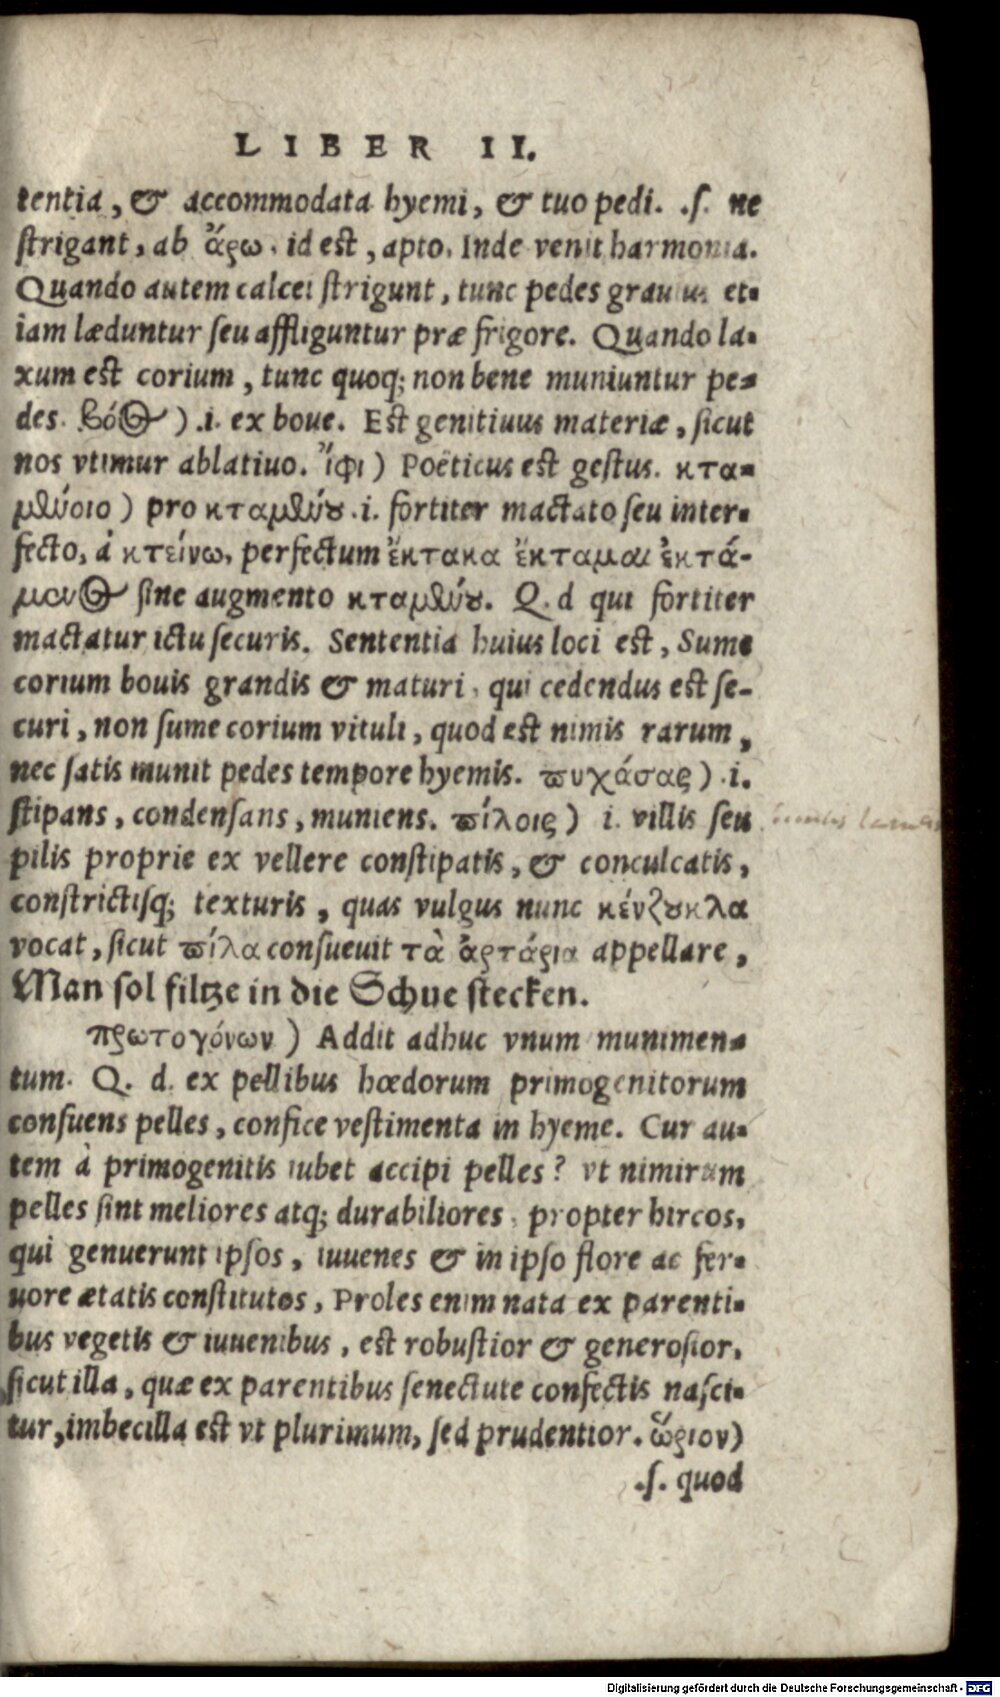 LIBER II.
tentia, & accommodata hyemi, & tuo pedi. .s. ne
strigant, ab ἄρω. id est, apto. Inde venit harmonia.
Quando autem calcei strigunt, tunc pedes grauius et-
iam læduntur seu affliguntur præ frigore. Quando la-
xum est corium, tunc quoq; non bene muniuntur pe-
des. βόος) .i. ex boue. Est genitiuus materiæ, sicut
nos vtimur ablatiuo. ἶφι) Poëticus est gestus. κτα-
μένοιο) pro κταμένου .i. fortiter mactato seu inter-
fecto, à κτείνω, perfectum ἔκτακα ἔκταμαι ἐκτά-
μενος sine augmento κταμένου. Q. d qui fortiter
mactatur ictu securis. Sententia huius loci est, Sume
corium bouis grandis & maturi, qui cedendus est se-
curi, non sume corium vituli, quod est nimis rarum,
nec satis munit pedes tempore hyemis. πυκάσας) .i.
stipans, condensans, muniens. πίλοις) i. villis seu
pilis proprie ex vellere constipatis, & conculcatis,
constrictisq; texturis, quas vulgus nunc κένζουκλα
vocat, sicut πίλα consueuit τὰ ἀρτάρια appellare,
Man sol filtze in die Schue stecken.
πρωτογόνων) Addit adhuc vnum munimen-
tum. Q. d. ex pellibus hœdorum primogenitorum
consuens pelles, confice vestimenta in hyeme. Cur au-
tem à primogenitis iubet accipi pelles? vt nimirum
pelles sint meliores atq; durabiliores, propter hircos,
qui genuerunt ipsos, iuuenes & in ipso flore ac fer-
uore ætatis constitutos, Proles enim nata ex parenti-
bus vegetis & iuuenibus, est robustior & generosior,
sicut illa, quæ ex parentibus senectute confectis nasci-
tur, imbecilla est vt plurimum, sed prudentior. ὥριον)
.s. quod
Digitalisierung gefördert durch die Deutsche Forschungsgemeinschaft - DFG